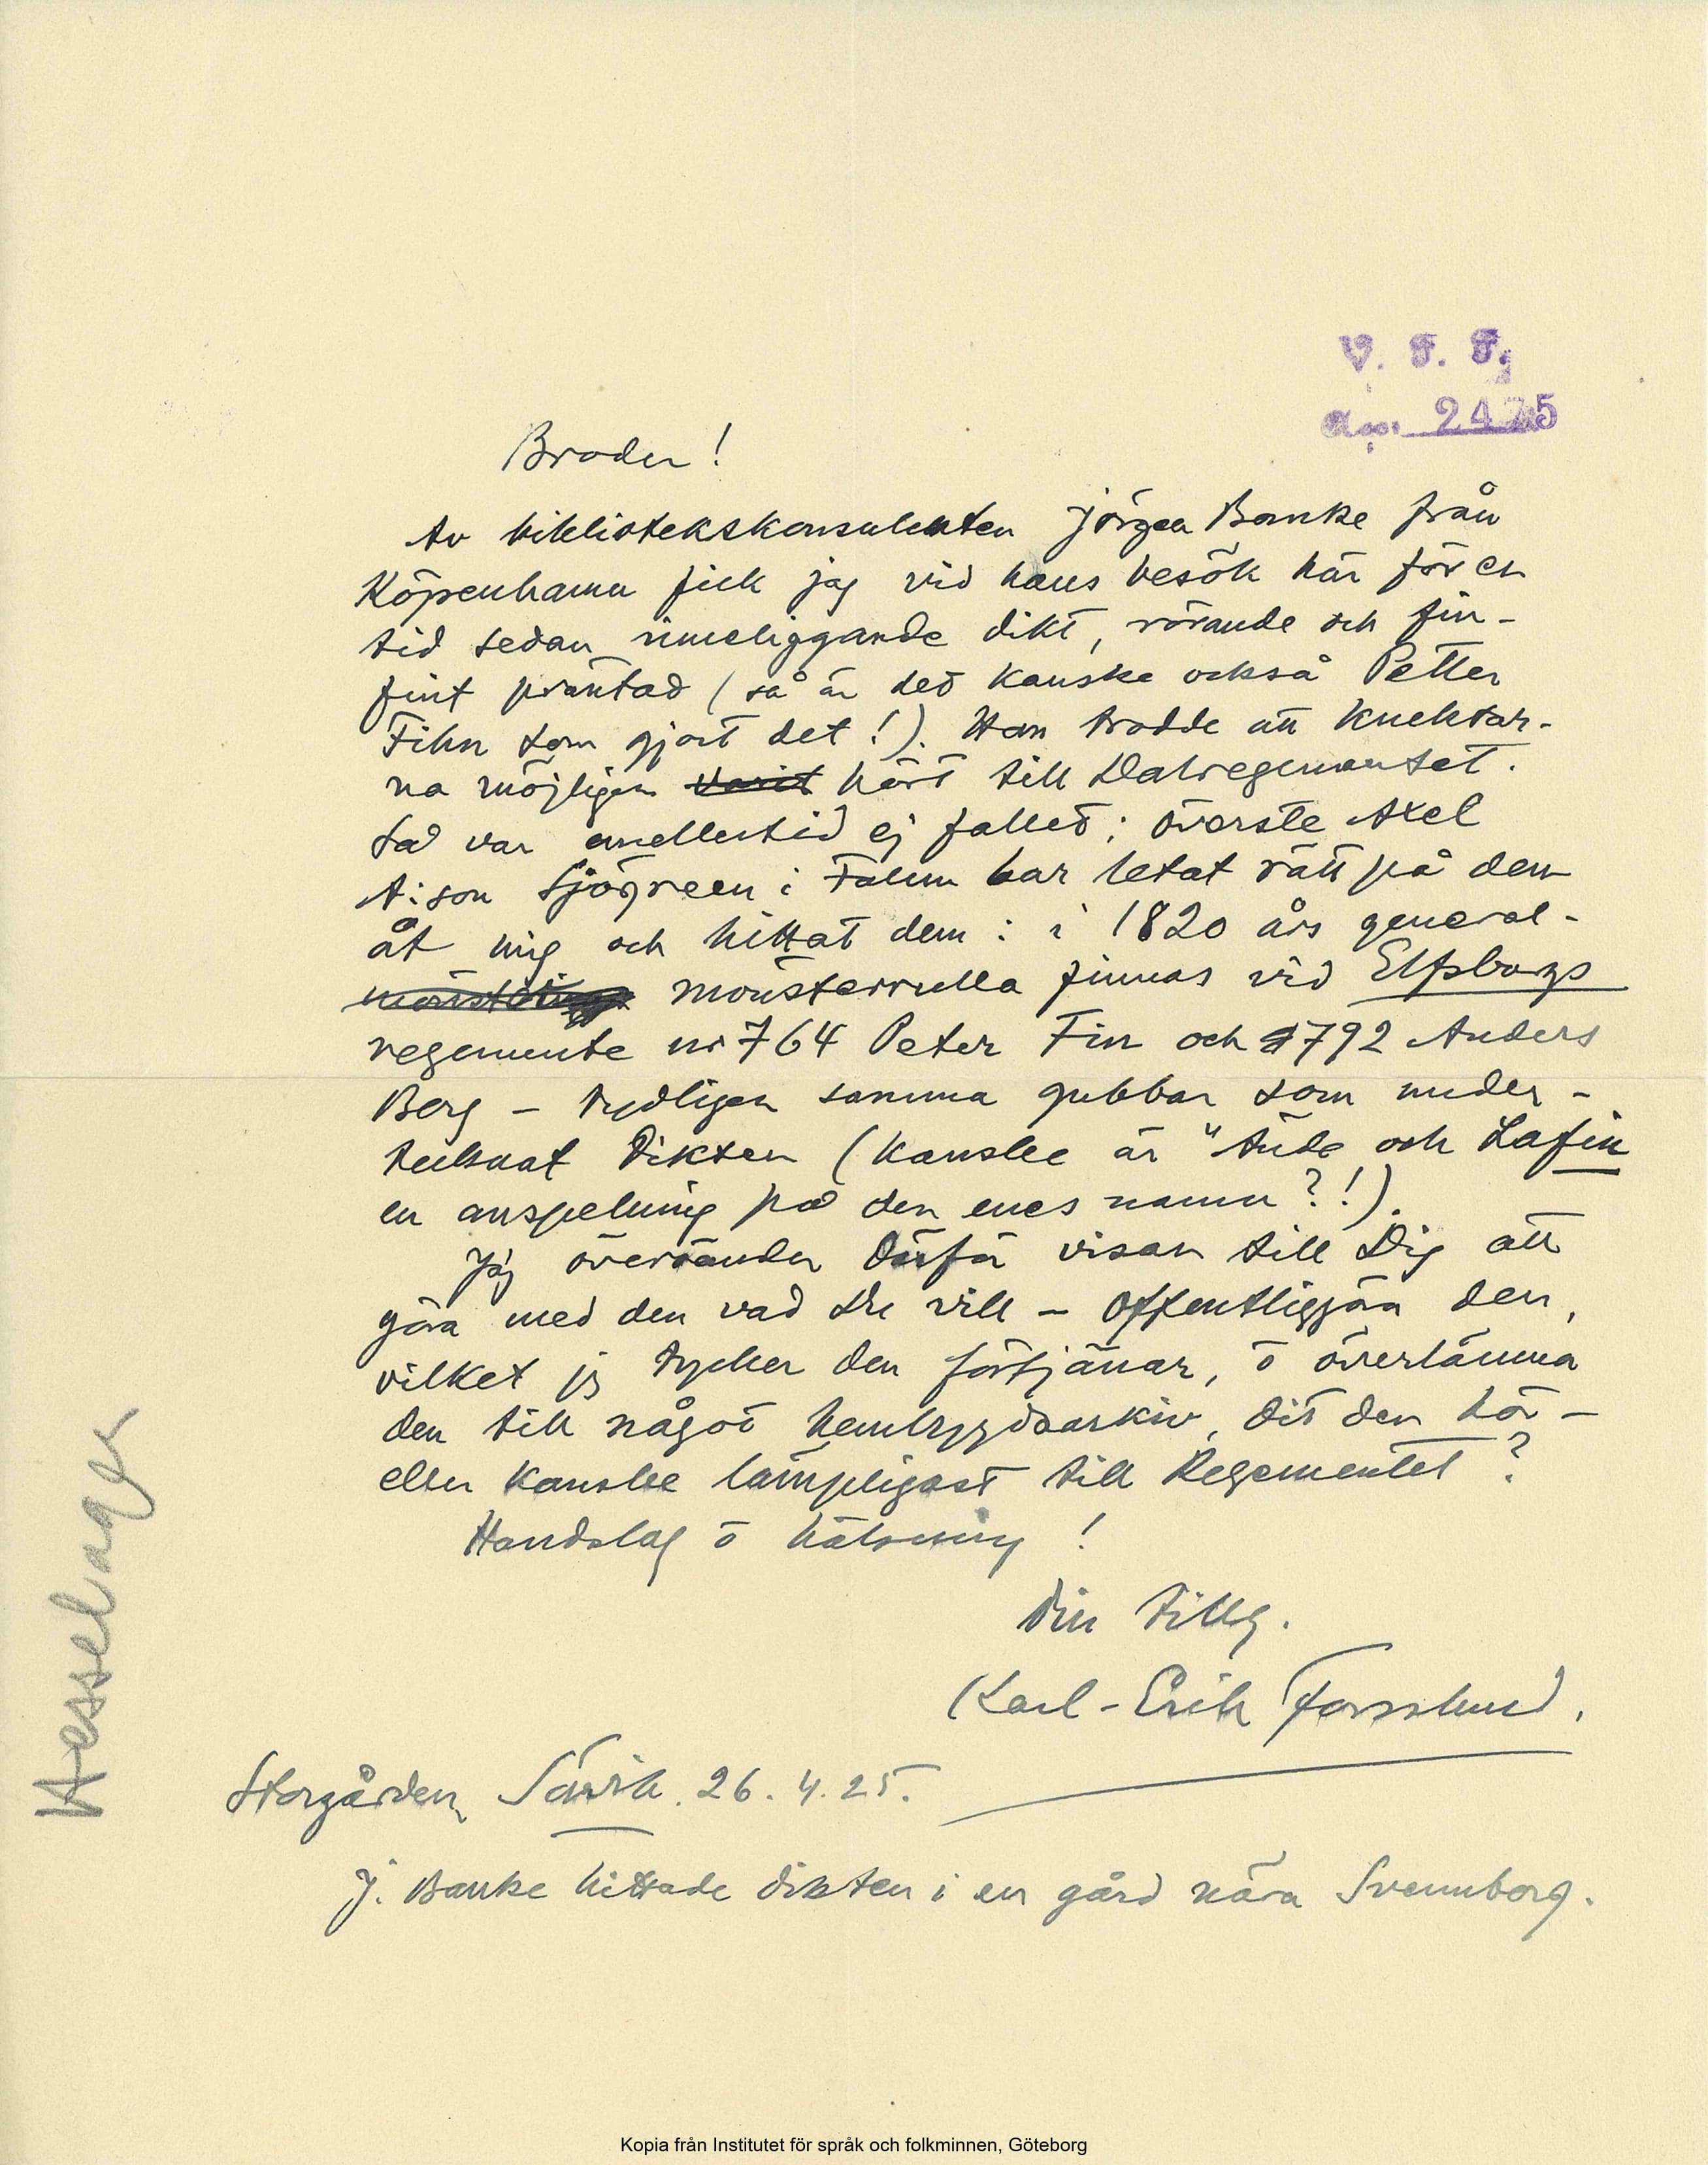 V. F. F.
Acc. 2425
Broder!
Av bibliotekskonsulenten Jörgen Banke från
Köpenhamn fick jag vid hans besök här för en
tid sedan inneliggande dikt, rörande och fin-
fint präntad (så är det kanske också Petter
Fihn som gjort det!). Han trodde att knektar-
na möjligen varit hört till Dalregementet.
Så var emellertid ej fallet; överste Axel
A:son Sjögreen i Falun har letat rätt på dem
åt mig och hittat dem: i 1820 års general-
mönsterrulla finnas vid Elfsborgs
regemente nr 764 Peter Fin och 792 Anders
Berg – tydligen samma gubbar som under-
tecknat dikten (kanske är "Ände och Lafin
en anspelning på den enes namn?!).
Jag översänder därför visan till Dig att
göra med den vad Du vill – offentliggöra den,
vilket jag tycker den förtjänar, o överlämna
den till något hembygdsarkiv, dit den hör –
eller kanske lämpligast till Regementet?
Handslag o hälsning!
Din tillg.
Karl-Erik Forsslund.
Storgården, Särvik. 26.4.25.
J. Banke hittade dikten i en gård nära Svennborg.
Hesselager
Kopia från Institutet för språk och folkminnen, Göteborg